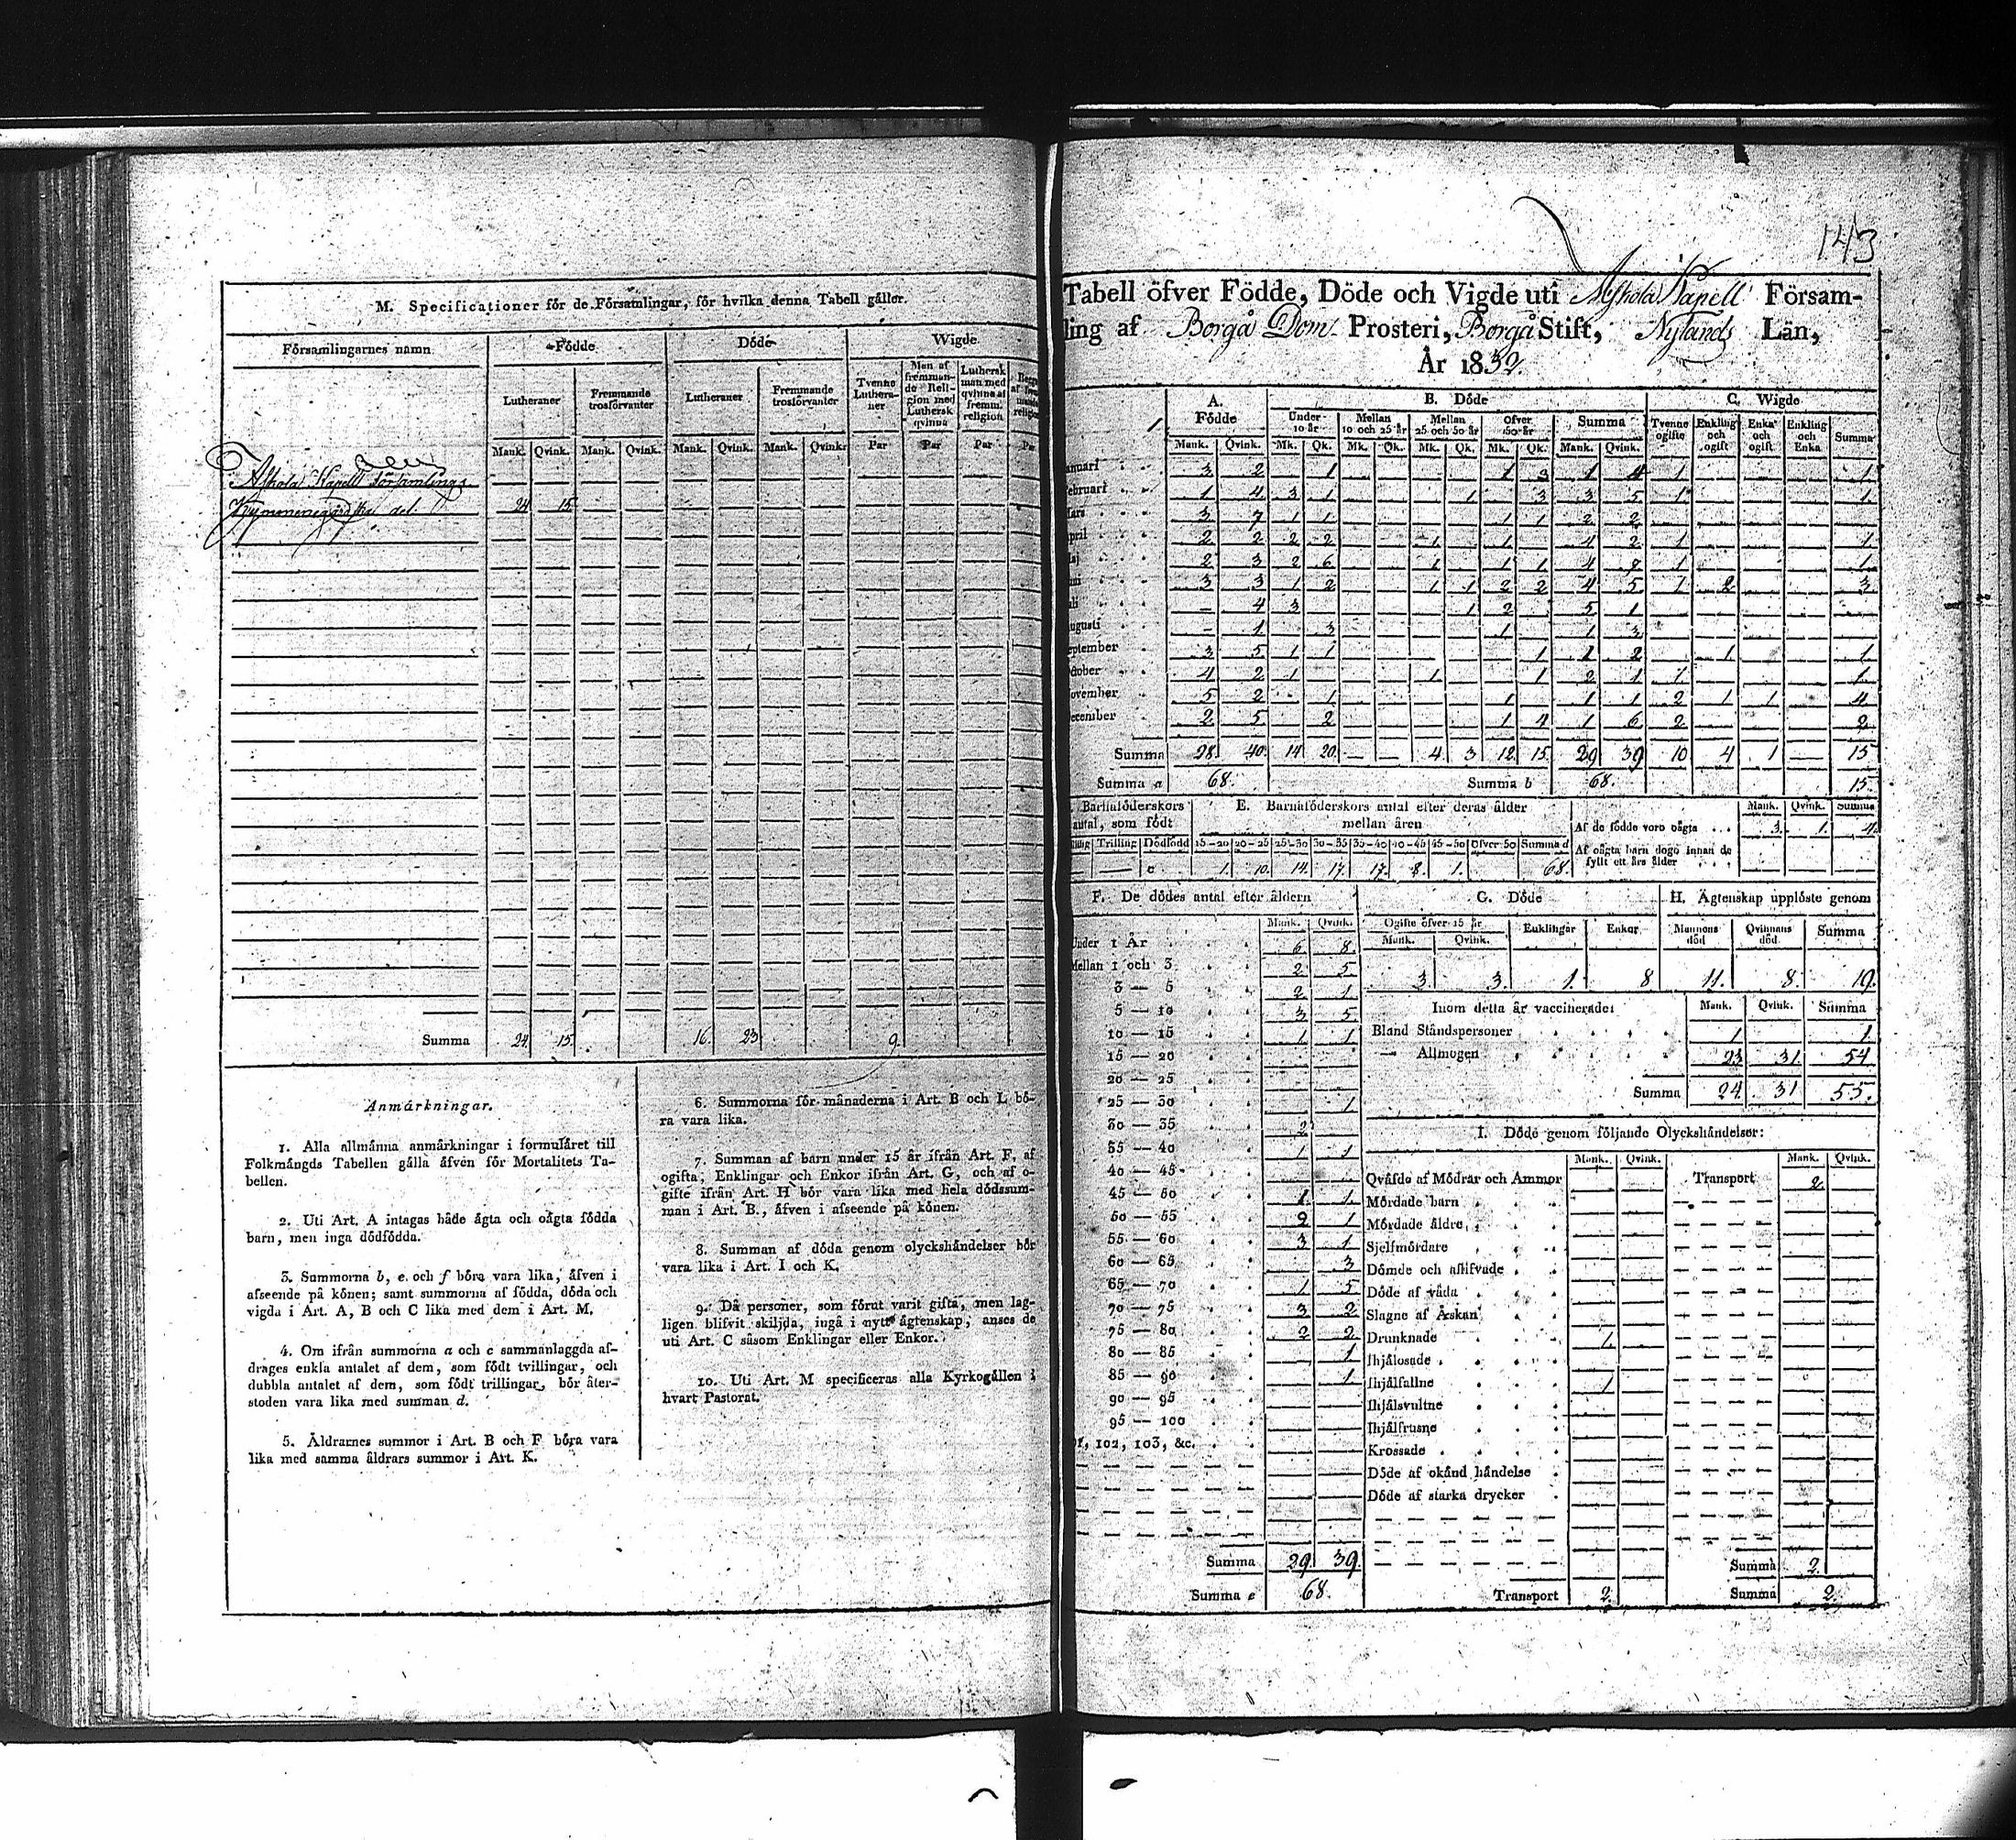 M. Specificationer för de Församlingar, för hvilka denna Tabell gäller.
Församlingarnes namn Födde Döde Wigde
Lutheraner Fremmande trosförvanter Lutheraner Fremmande trosförvanter Tvenne Lutheraner Man af fremmande Religion med Luthersk qvinna Luthersk man med qvinna af fremm. religion
Mank. Qvink. Mank. Qvink. Mank. Qvink. Mank. Qvink. Par Par Par Par
Askola Kapell Församlings
Kymmenegårdska del. 24 15
Summa 24. 15. 16. 23. 9.
Anmärkningar.
1. Alla allmänna anmärkningar i formuläret till
Folkmängds Tabellen gälla äfven för Mortalitets Ta-
bellen.
2. Uti Art. A intagas både ägta och oägta födda
barn, men inga dödfödda.
3. Summorna b, e och f böra vara lika, äfven i
afseende på könen; samt summorna af födda, döda och
vigda i Art. A, B och C lika med dem i Art. M.
4. Om ifrån summorna a och c sammanlaggda af-
drages enkla antalet af dem, som födt tvillingar, och
dubbla antalet af dem, som födt trillingar, bör åter-
stoden vara lika med summan d.
5. Åldrarnes summor i Art. B och F böra vara
lika med samma åldrars summor i Art. K.
6. Summorna för månaderna i Art. B och L bö-
ra vara lika.
7. Summan af barn under 15 år ifrån Art. F, af
ogifta, Enklingar och Enkor ifrån Art. G, och af o-
gifte ifrån Art. H bör vara lika med hela dödssum-
man i Art. B., äfven i afseende på könen.
8. Summan af döda genom olyckshändelser bör
vara lika i Art. I och K.
9. Då personer, som förut varit gifta, men lag-
ligen blifvit skiljda, ingå i nytt ägtenskap, anses de
uti Art. C såsom Enklingar eller Enkor.
10. Uti Art. M specificeras alla Kyrkogällen i
hvart Pastorat.
143
Tabell öfver Födde, Döde och Vigde uti Askola Kapell Försam-
ling af Borgå Dom Prosteri, Borgå Stift, Nylands Län,
År 1832.
A. Födde B. Döde C. Wigde
Under 10 år Mellan 10 och 25 år Mellan 25 och 50 år Öfver 50 år Summa Tvenne ogifte Enkling och ogift Enka och ogift Enkling och Enka Summa
Mank. Qvink. Mk. Qk. Mk. Qk. Mk. Qk. Mk. Qk. Mank. Qvink.
anuari 3 2 1 1 3 1 4 1 1
ebruari 1 4 3 1 1 3 3 5 1 1
ars 3 7 1 1 1 1 2 2
pril 2 2 2 2 1 1 4 2 1 1
aj 2 3 2 6 1 1 1 4 8 1 1
uni 3 3 1 2 1 1 2 2 4 5 1 2 3
uli – 4 3 1 2 5 1
ugusti – 1 3 1 1 3
eptember 3 5 1 1 1 1 2 1 1
ctober 4 2 1 1 1 2 1 1 1
ovember 5 2 1 1 1 1 2 1 1 4
ecember 2 5 2 1 4 1 6 2 2
Summa 28. 40. 14 20. — — 4 3 12. 15. 29 39 10 4 1 — 15
Summa a 68. Summa b 68. 15.
Barnaföderskors antal, som födt E. Barnaföderskors antal efter deras ålder mellan åren
Mank. Qvink. Summa
Af de födde voro oägta . . . 3. 1. 4.
Af oägta barn dogo innan de fyllt ett års ålder
Trilling Dödfödd 15—20 20—25 25—30 30—35 35—40 40—45 45—50 Öfver 50 Summa d
1. 10. 14. 17. 17. 8. 1. 68.
F. De dödes antal efter åldern
Mank. Qvink.
Under 1 År 6 8.
Mellan 1 och 3 2 5
3 — 5 2 1
5 — 10 3 5
10 — 15 1 1
15 — 20
20 — 25
25 — 30 1
30 — 35 2
35 — 40 1 1
40 — 45
45 — 50 1 1
50 — 55 2 1
55 — 60 3 1
60 — 65 3
65 — 70 1 5
70 — 75 3 2
75 — 80 2 2
80 — 85 1
85 — 90 1
90 — 95
95 — 100
101, 102, 103, &c.
Summa 29. 39.
Summa e 68.
G. Döde H. Ägtenskap upplöste genom
Ogifte öfver 15 år Enklingar Enkor Mannens död Qvinnans död Summa
Mank. Qvink.
3. 3. 1. 8 11. 8. 19.
Inom detta år vaccinerade: Mank. Qvink. Summa
Bland Ståndspersoner 1 1.
— Allmogen 23 31. 54
Summa 24. 31 55.
I. Döde genom följande Olyckshändelser:
Mank. Qvink. Mank. Qvink.
Qväfde af Mödrar och Ammor Transport 2.
Mördade barn
Mördade äldre
Sjelfmördare
Dömde och aflifvade
Döde af våda
Slagne af Åskan
Drunknade 1.
Ihjälosade
Ihjälfallne 1
Ihjälsvultne
Ihjälfrusne
Krossade
Döde af okänd händelse
Döde af starka drycker
Summa 2.
Transport 2. Summa 2.